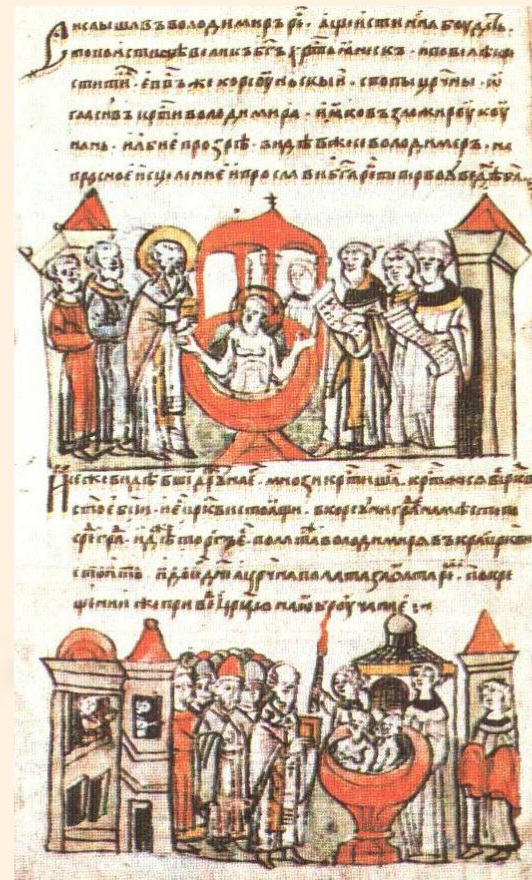 слышавъ володимиръ ре҃. аще истинна боудеть.
поистинѣ великъ бг҃ъ хр҃тьꙗнескъ. и повелѣ кр
стити. еп҃пъ же корсоуньскыи. с попы цр҃чны. ѡ
гласивъ крт҃и володимира. и ꙗко възложи роукоу
на нь. и абие прозрѣ. видѣвъ же се володимеръ. на
прасное исцеление и прослави бг҃а ре҃ то первоѣ
се же видѣвше дружина е҃. мнози крт҃иша. крт҃и же сѧ в црк҃в
ст҃ое бц҃и. и е црк҃ви стоꙗщи. в корсуни градѣ на мѣсте по
среⷣ гра҃. идѣ торгъ е҃. полата володимирѧ въ краи црк҃ви
стоить и до дн҃ѧ. а цр҃чна полата за олтаре҃. по кре
щении же при цр҃цю на ѡброучание